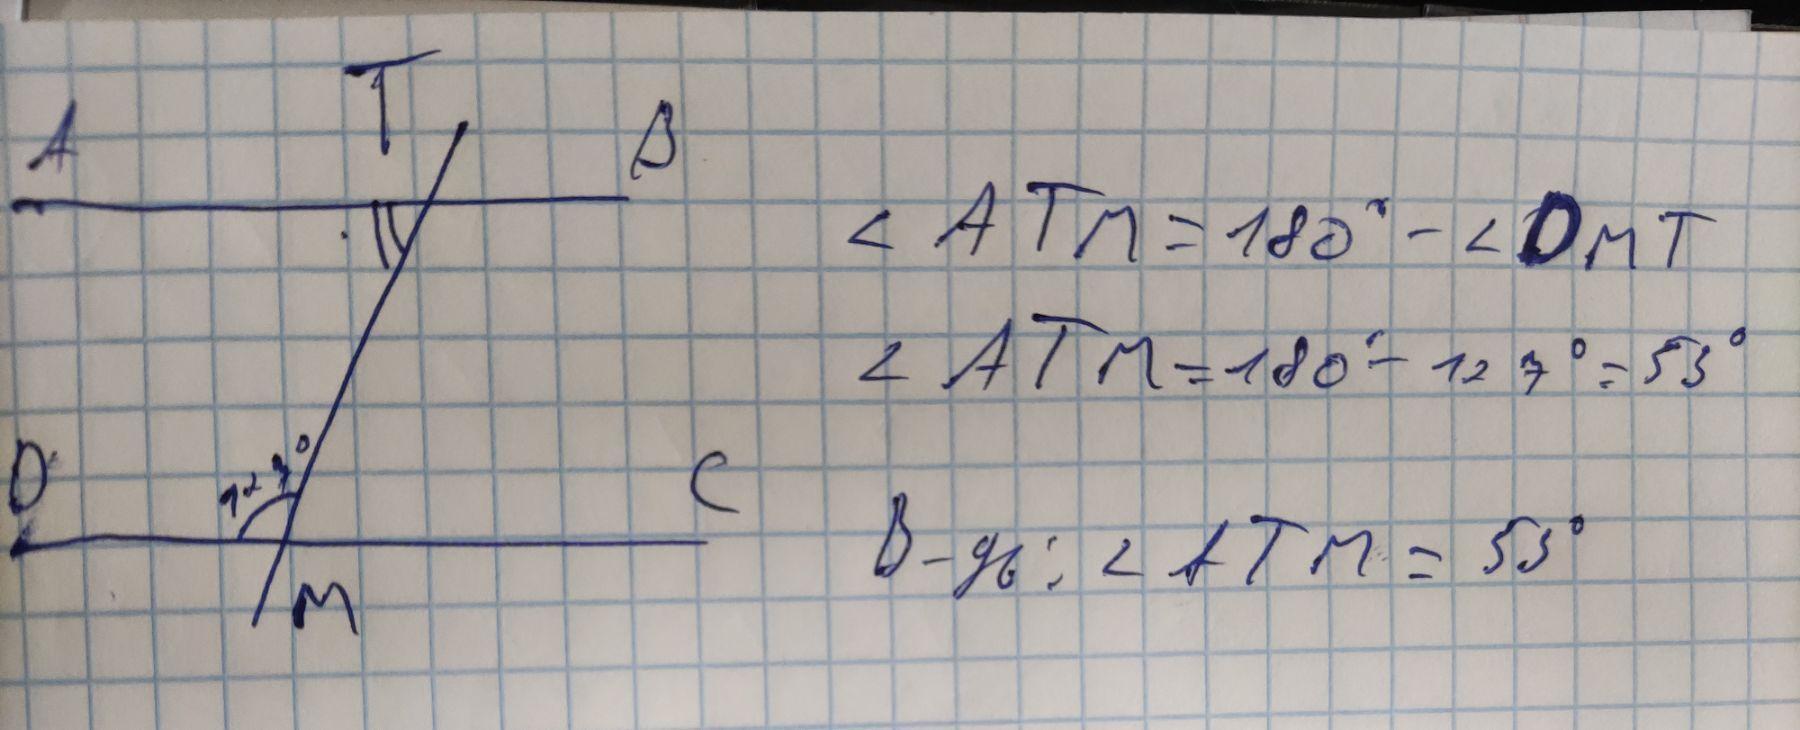 T
A
B
127°
D
C
M
< ATM = 180° - < DMT
< ATM = 180° - 127° = 53°
В-дь: < ATM = 53°